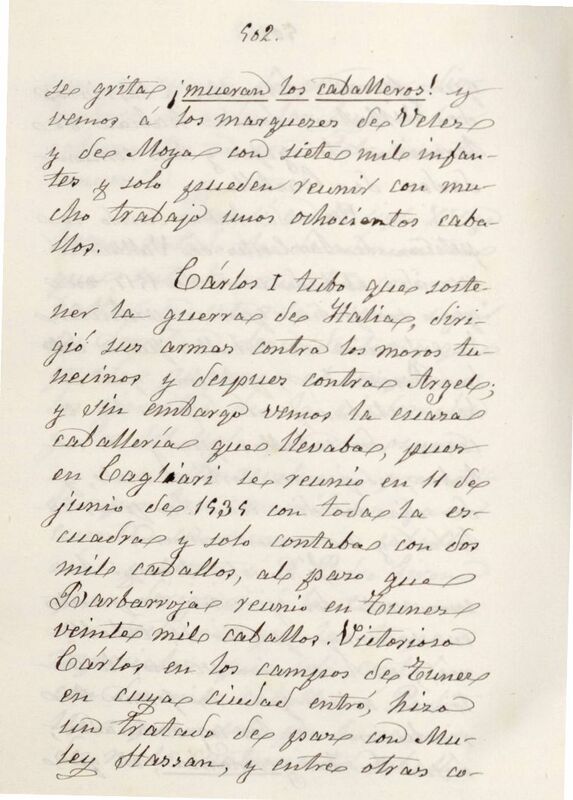 502.
se grita ¡mueran los caballeros! y
vemos á los marqueses de Velez
y de Moya con siete mil infan-
tes y solo pueden reunir con mu-
cho trabajo unos ochocientos caba-
llos.
Cárlos I tubo que soste-
ner la guerra de Italia, diri-
gió sus armas contra los moros tu-
necinos y despues contra Argel;
y sin embargo vemos la escasa
caballería que llevaba, pues
en Cagliari se reunio en 11 de
junio de 1535 con toda la es-
cuadra y solo contaba con dos
mil caballos, al paso que
Barbarroja reunió en Tunez
veinte mil caballos. Victorioso
Cárlos en los campos de Tunez
en cuya ciudad entró, hizo
un tratado de paz con Mu-
ley Hassan, y entre otras co-